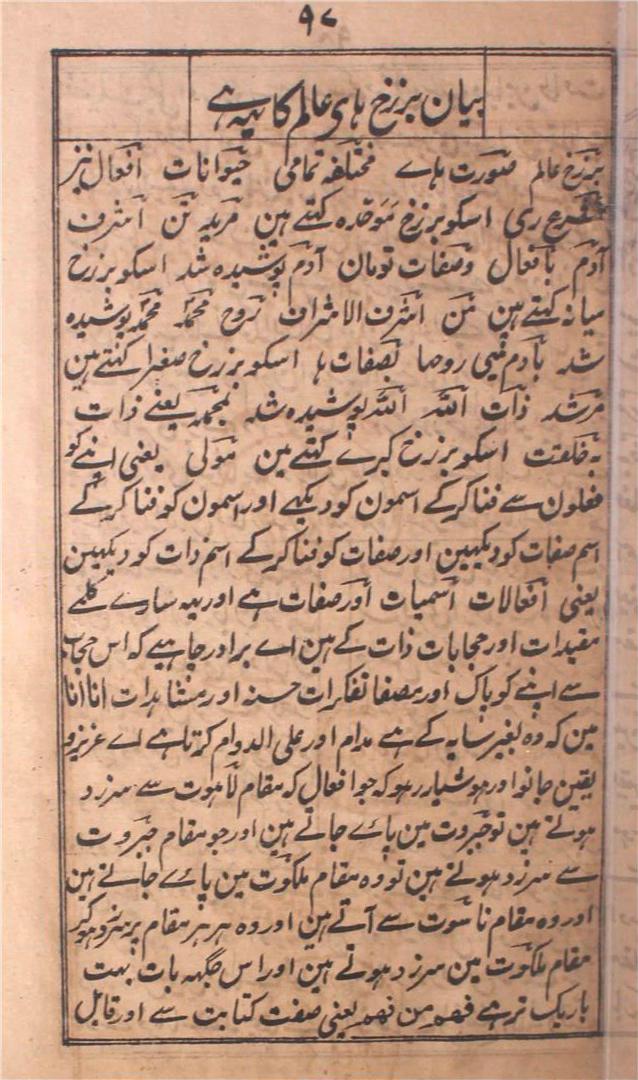 ۹۷
بیان برزخ ہای عالم کا یہ ہے
برزخ عالم صورت ہاے مختلفہ تمامی حیوانات افعال نیز
ری اسکو برزخ موحدہ کہتے ہین مرید تن اشرف
آدم بافعال وصفات تومان آدم پوشیدہ شد اسکو برزخ
میانہ کہتے ہین من اشرف الاشراف روح محمد محمد پوشیدہ
شد بادم بصفات ہا اسکو برزخ صغرا کہتے ہین
مرشد ذات اللہ اللہ پوشیدہ شد بمحمد یعنے ذات
بہ خلقت اسکو برزخ کبرے کہتے ہین مولی یعنی اپنے کو
فعلون سے فنا کرکے اسمون کو دیکہے اور اسمون کو فنا کرکے
اسم صفات کو دیکہین اور صفات کو فنا کرکے اسم ذات کو دیکہین
یعنی افعالات اسمیات اور صفات ہے اور یہ سارے کلمے
مقیدات اور حجابات ذات کے ہین اے برادر چاہیے کہ اس حجاب
سے اپنے کو پاک اور مصفا تفکرات حسنہ اور مشاہدات انا انا
مین کہ وہ بغیر سایہ کے ہے مدام اور علی الدوام کرتا ہے اے عزیزو
یقین جانو اور ہوشیار رہو کہ جو افعال کہ مقام لاہوت سے سرزد
ہوتے ہین تو جبروت مین پاے جاتے ہین اور جو مقام جبروت
سے سرزد ہوتے ہین تو وہ مقام ملکوت مین پاے جاتے ہین
اور وہ مقام ناسوت سے آتے ہین اور وہ ہر ہر مقام پر سرزد ہوکر
مقام ملکوت مین سرزد ہوتے ہین اور اس جگہہ بات بہت
باریک تر ہے فہم من فہم یعنی صفت کتابت سے اور قابل